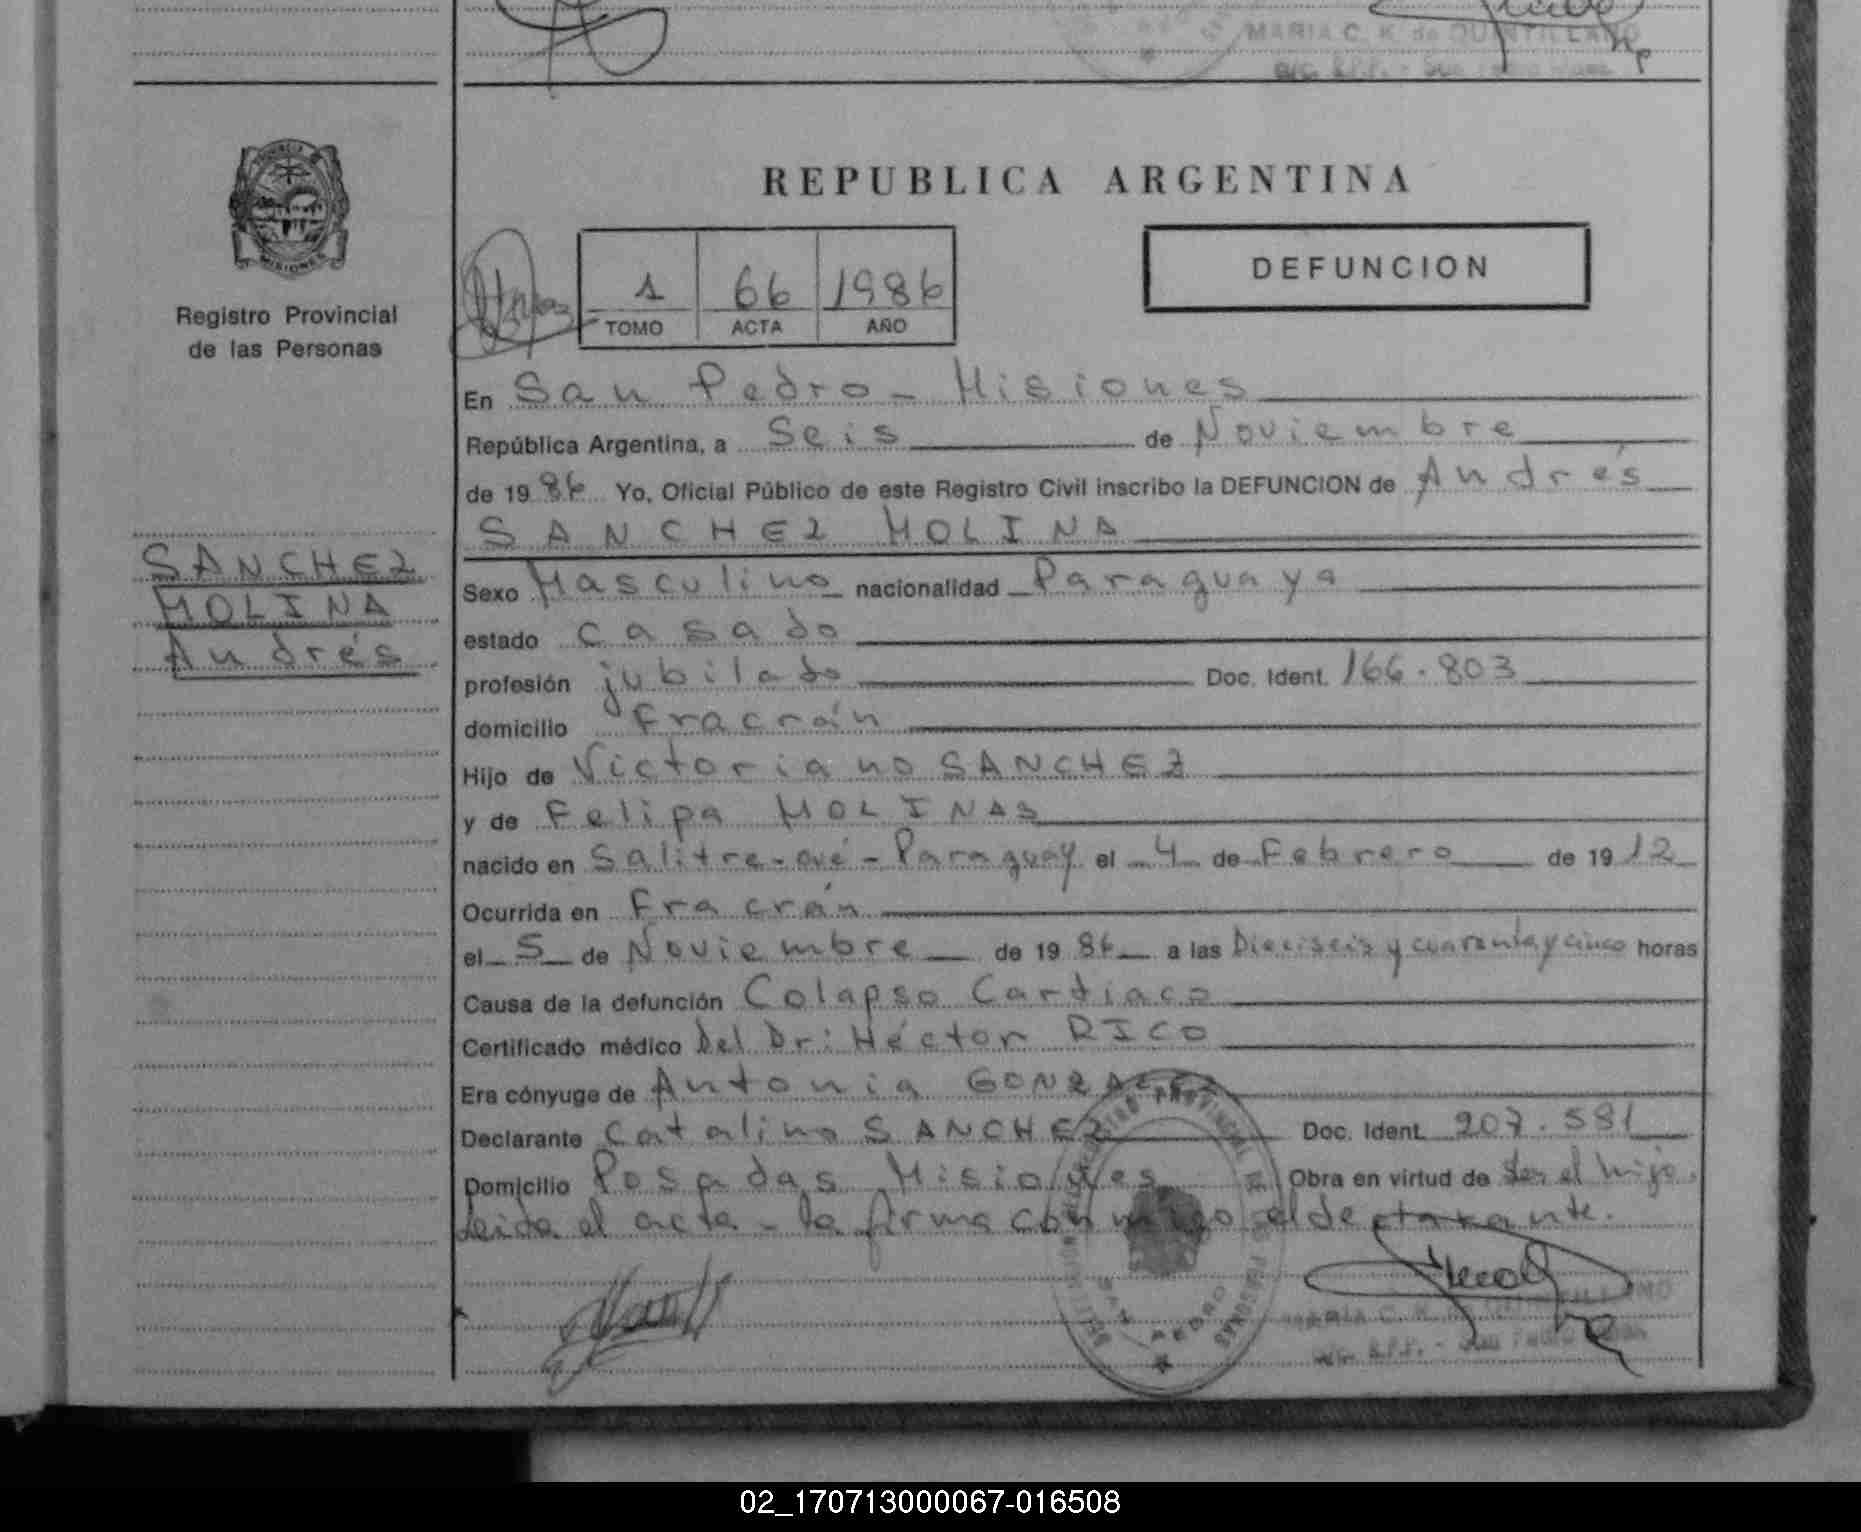 MARIA C. K. de QUINTILLANO
PROVINCIA DE
MISIONES
Registro Provincial
de las Personas
REPUBLICA ARGENTINA
DEFUNCION
1 66 1986
TOMO ACTA AÑO
En San Pedro - Misiones
República Argentina, a Seis de Noviembre
de 1986 Yo, Oficial Público de este Registro Civil inscribo la DEFUNCION de Andrés
SANCHEZ MOLINA
SANCHEZ
MOLINA
Andrés
Sexo Masculino nacionalidad Paraguaya
estado casado
profesión jubilado Doc. Ident. 166.803
domicilio Fracrán
Hijo de Victoriano SANCHEZ
y de Felipa MOLINAS
nacido en Salitre-cué-Paraguay el 4 de Febrero de 1912
Ocurrida en Fracrán
el 5 de Noviembre de 1986 a las Dieciseis y cuarenta y cinco horas
Causa de la defunción Colapso Cardiaco
Certificado médico Del Dr: Héctor RICO
Era cónyuge de Antonia GONZALEZ
Declarante Catalino SANCHEZ Doc. Ident. 207.581
Domicilio Posadas Misiones Obra en virtud de ser el hijo.
Leida el acta - la firma conmigo el declarante.
REGISTRO PROVINCIAL DE LAS PERSONAS
SAN PEDRO
MARIA C. K. de QUINTILLANO
02_170713000067-016508